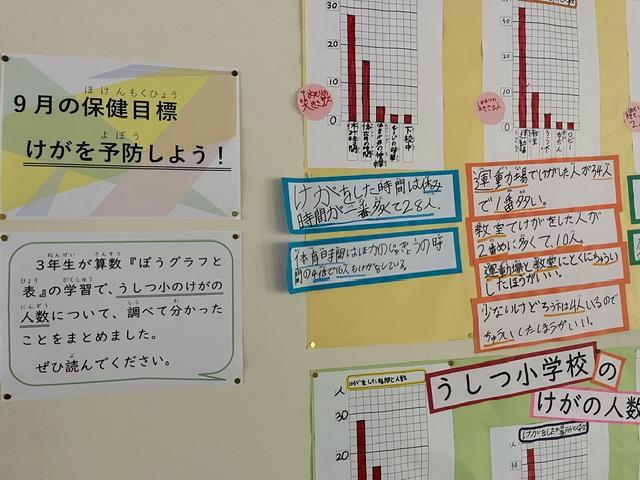 9月の保健目標
けがを予防しよう！
3年生が算数『ぼうグラフと
表』の学習で、うしつ小のけがの
人数について、調べて分かった
ことをまとめました。
ぜひ読んでください。
30
20
10
0
休み時間
体育の時間
下校中
30
20
10
0
運動場
教室
ろうか
けがをした時間は休み
時間が一番多くて28人.
体育の時間はほかのじゅぎょうの時
間の4倍で16人もけがをしている。
運動場でけがした人が34人
で1番多い。
教室でけがをした人が
2番めに多くて、10人。
運動場と教室にとくにちゅうい
したほうがいい。
少ないけどろう下は4人いるので
ちゅういしたほうがいい!
けがをした時間と人数
人
30
20
うしつ小学校の
けがの人数
人
30